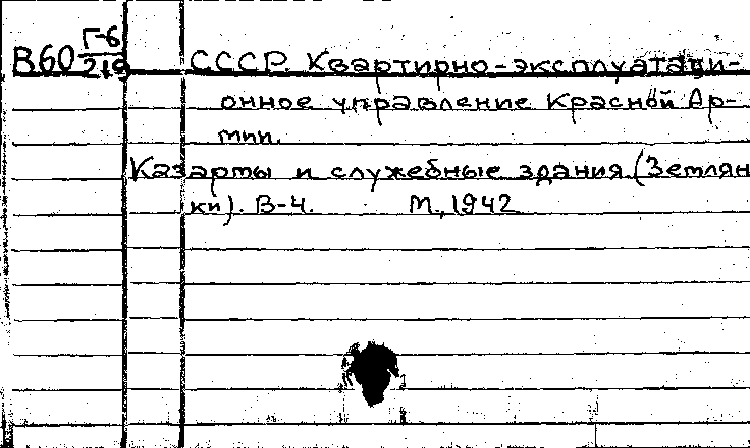 В60 Г-6/219 СССР. Квартирно-эксплуатаци-
онное управление Красной Ар-
мии.
Казармы и служебные здания. (Землян
ки). В-4. М., 1942